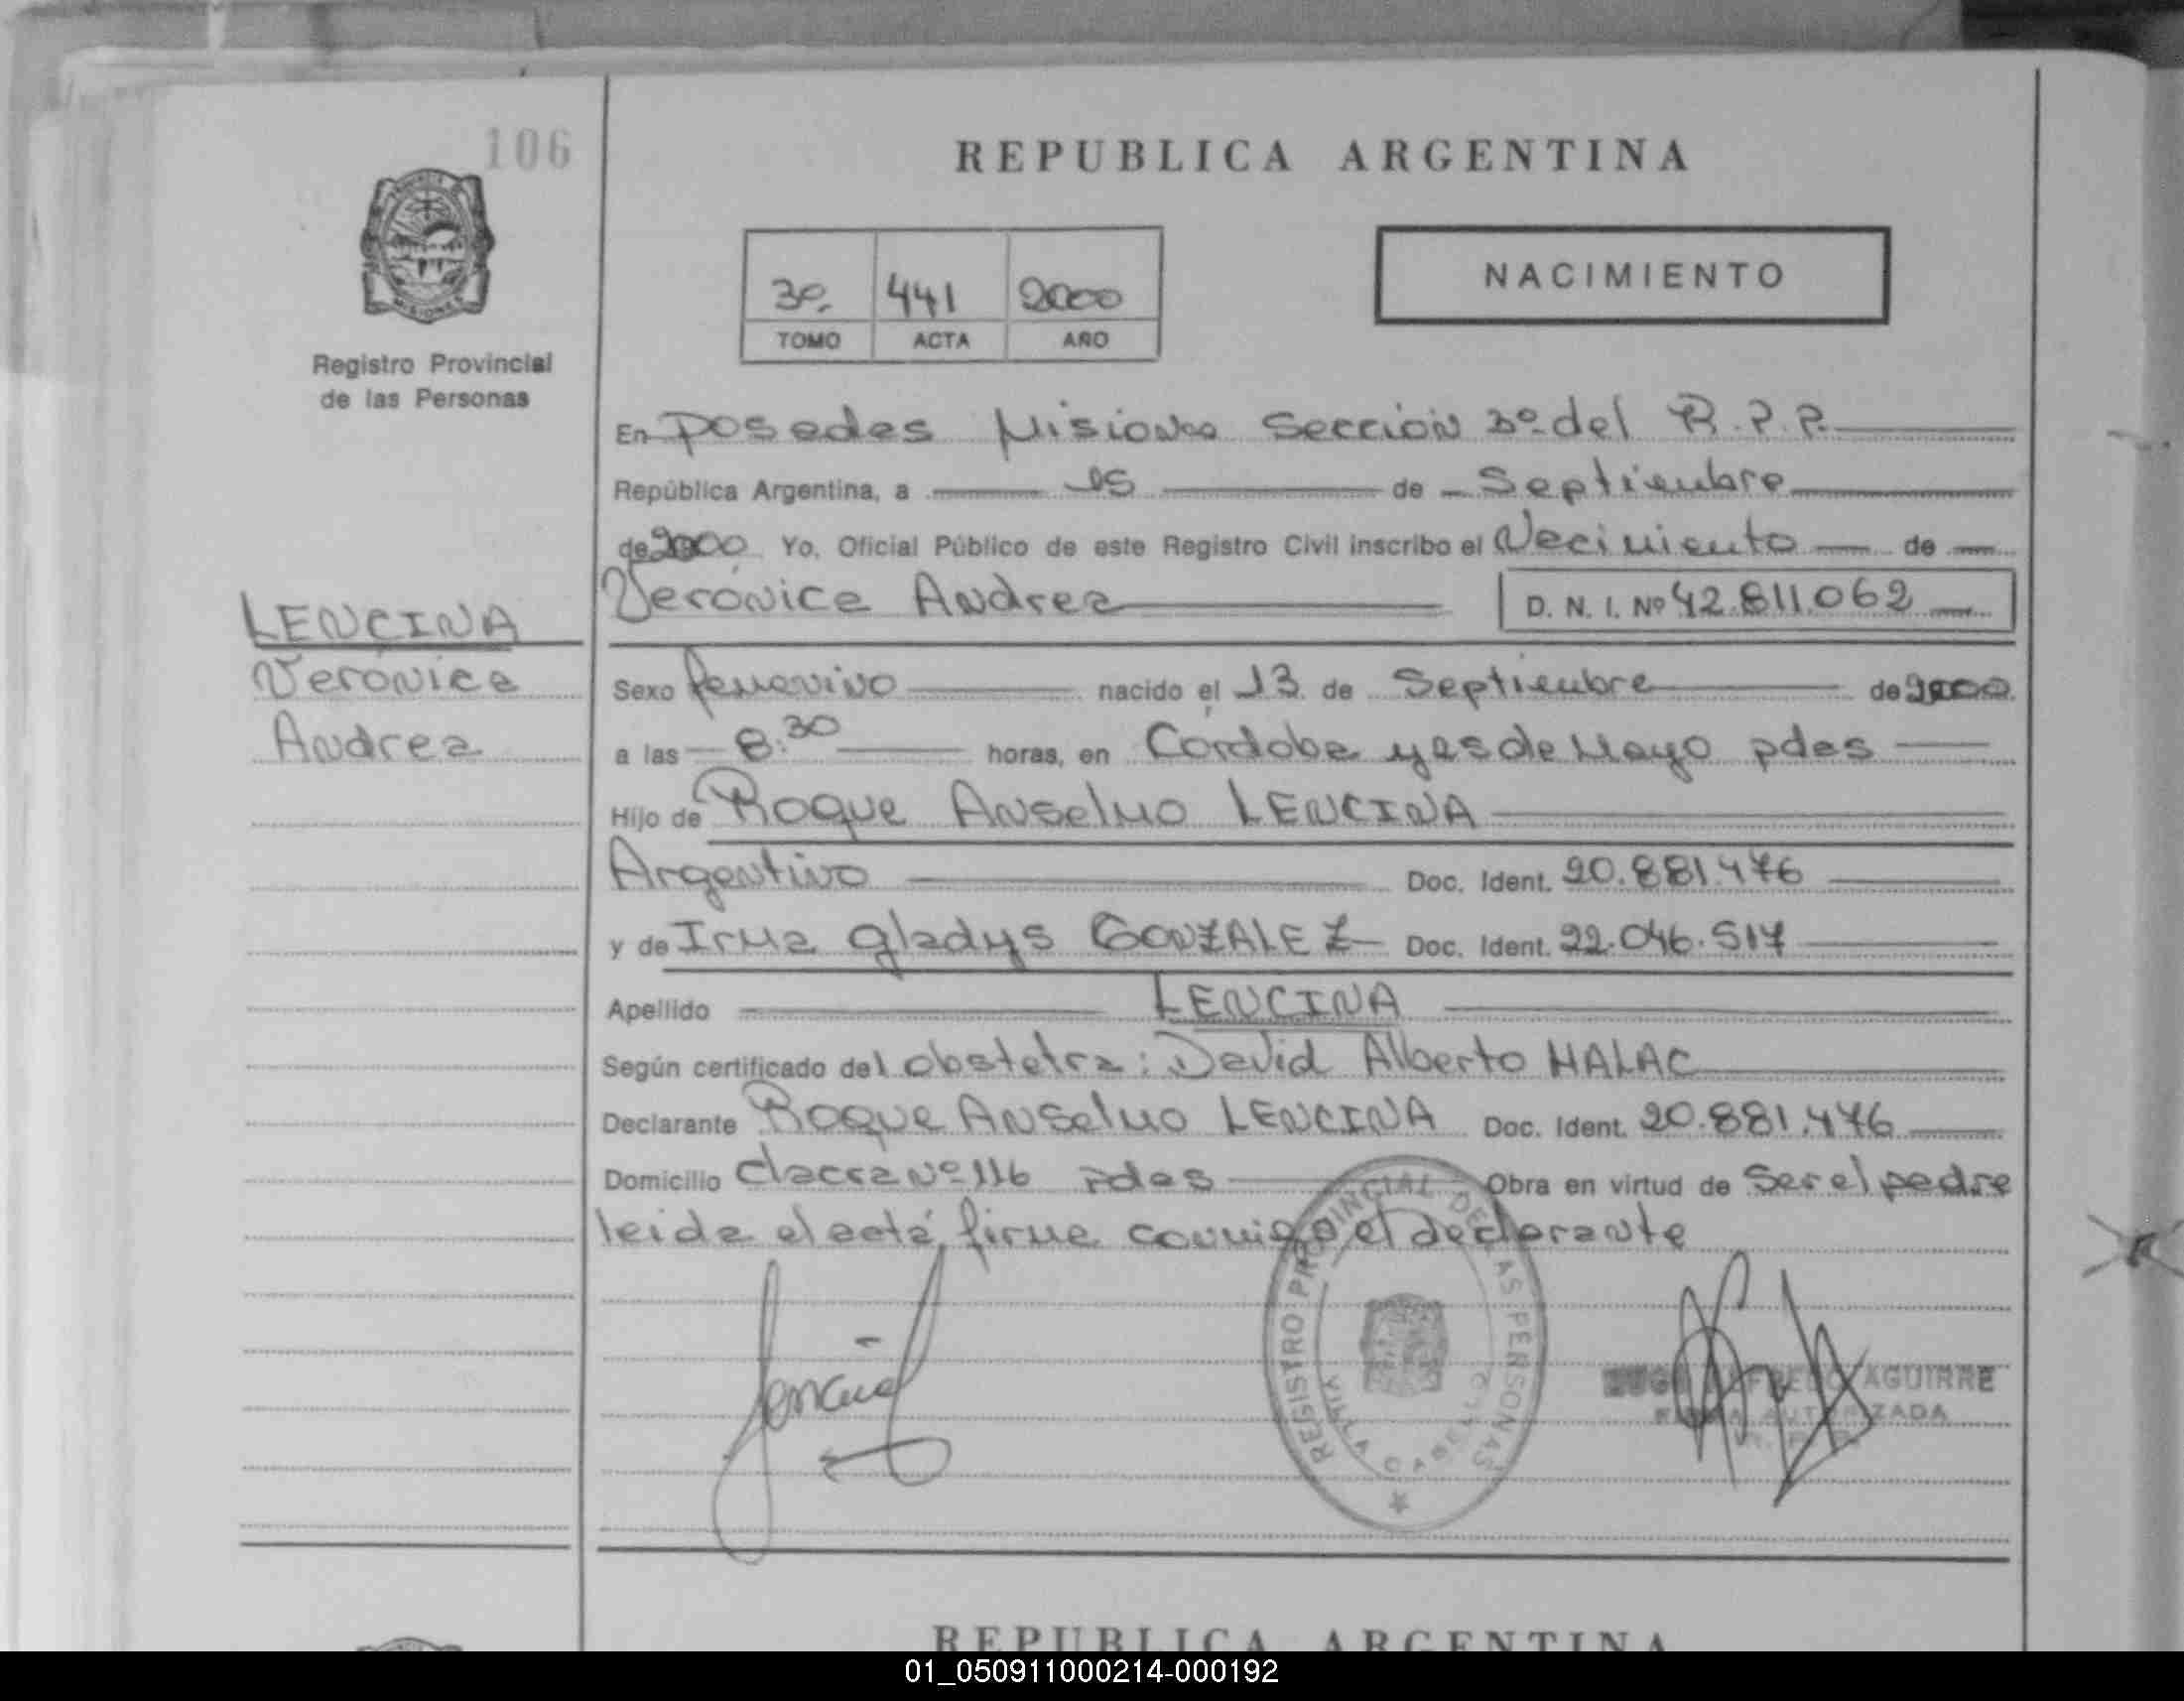 106
REPUBLICA ARGENTINA
NACIMIENTO
3º 441 2000
TOMO ACTA AÑO
Registro Provincial
de las Personas
En Posadas Misiones Sección 3º del R.P.P.
República Argentina, a 15 de Septiembre
de 2000 Yo, Oficial Público de este Registro Civil inscribo el Nacimiento de
Verónica Andrea D. N. I. Nº 42.811.062
LENCINA
Verónica
Andrea
Sexo femenino nacido el 13 de Septiembre de 2000
a las 8:30 horas, en Córdoba y 25 de Mayo pdas
Hijo de Roque Anselmo LENCINA
Argentino Doc. Ident. 20.881.476
y de Irma gladys GONZALEZ Doc. Ident. 22.046.517
Apellido LENCINA
Según certificado del obstetra: David Alberto HALAC
Declarante Roque Anselmo LENCINA Doc. Ident. 20.881.476
Domicilio Chacra Nº 116 Pdas Obra en virtud de Ser el padre
leida el acta, firma conmigo el declarante
REGISTRO PROVINCIAL DE LAS PERSONAS
VILLA CABELLO
HUGO ALFREDO AGUIRRE
FIRMA AUTORIZADA
REPUBLICA ARGENTINA
01_050911000214-000192